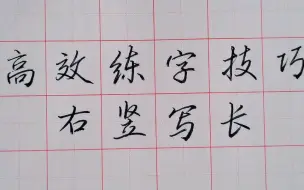 高效练字技巧
右竖写长